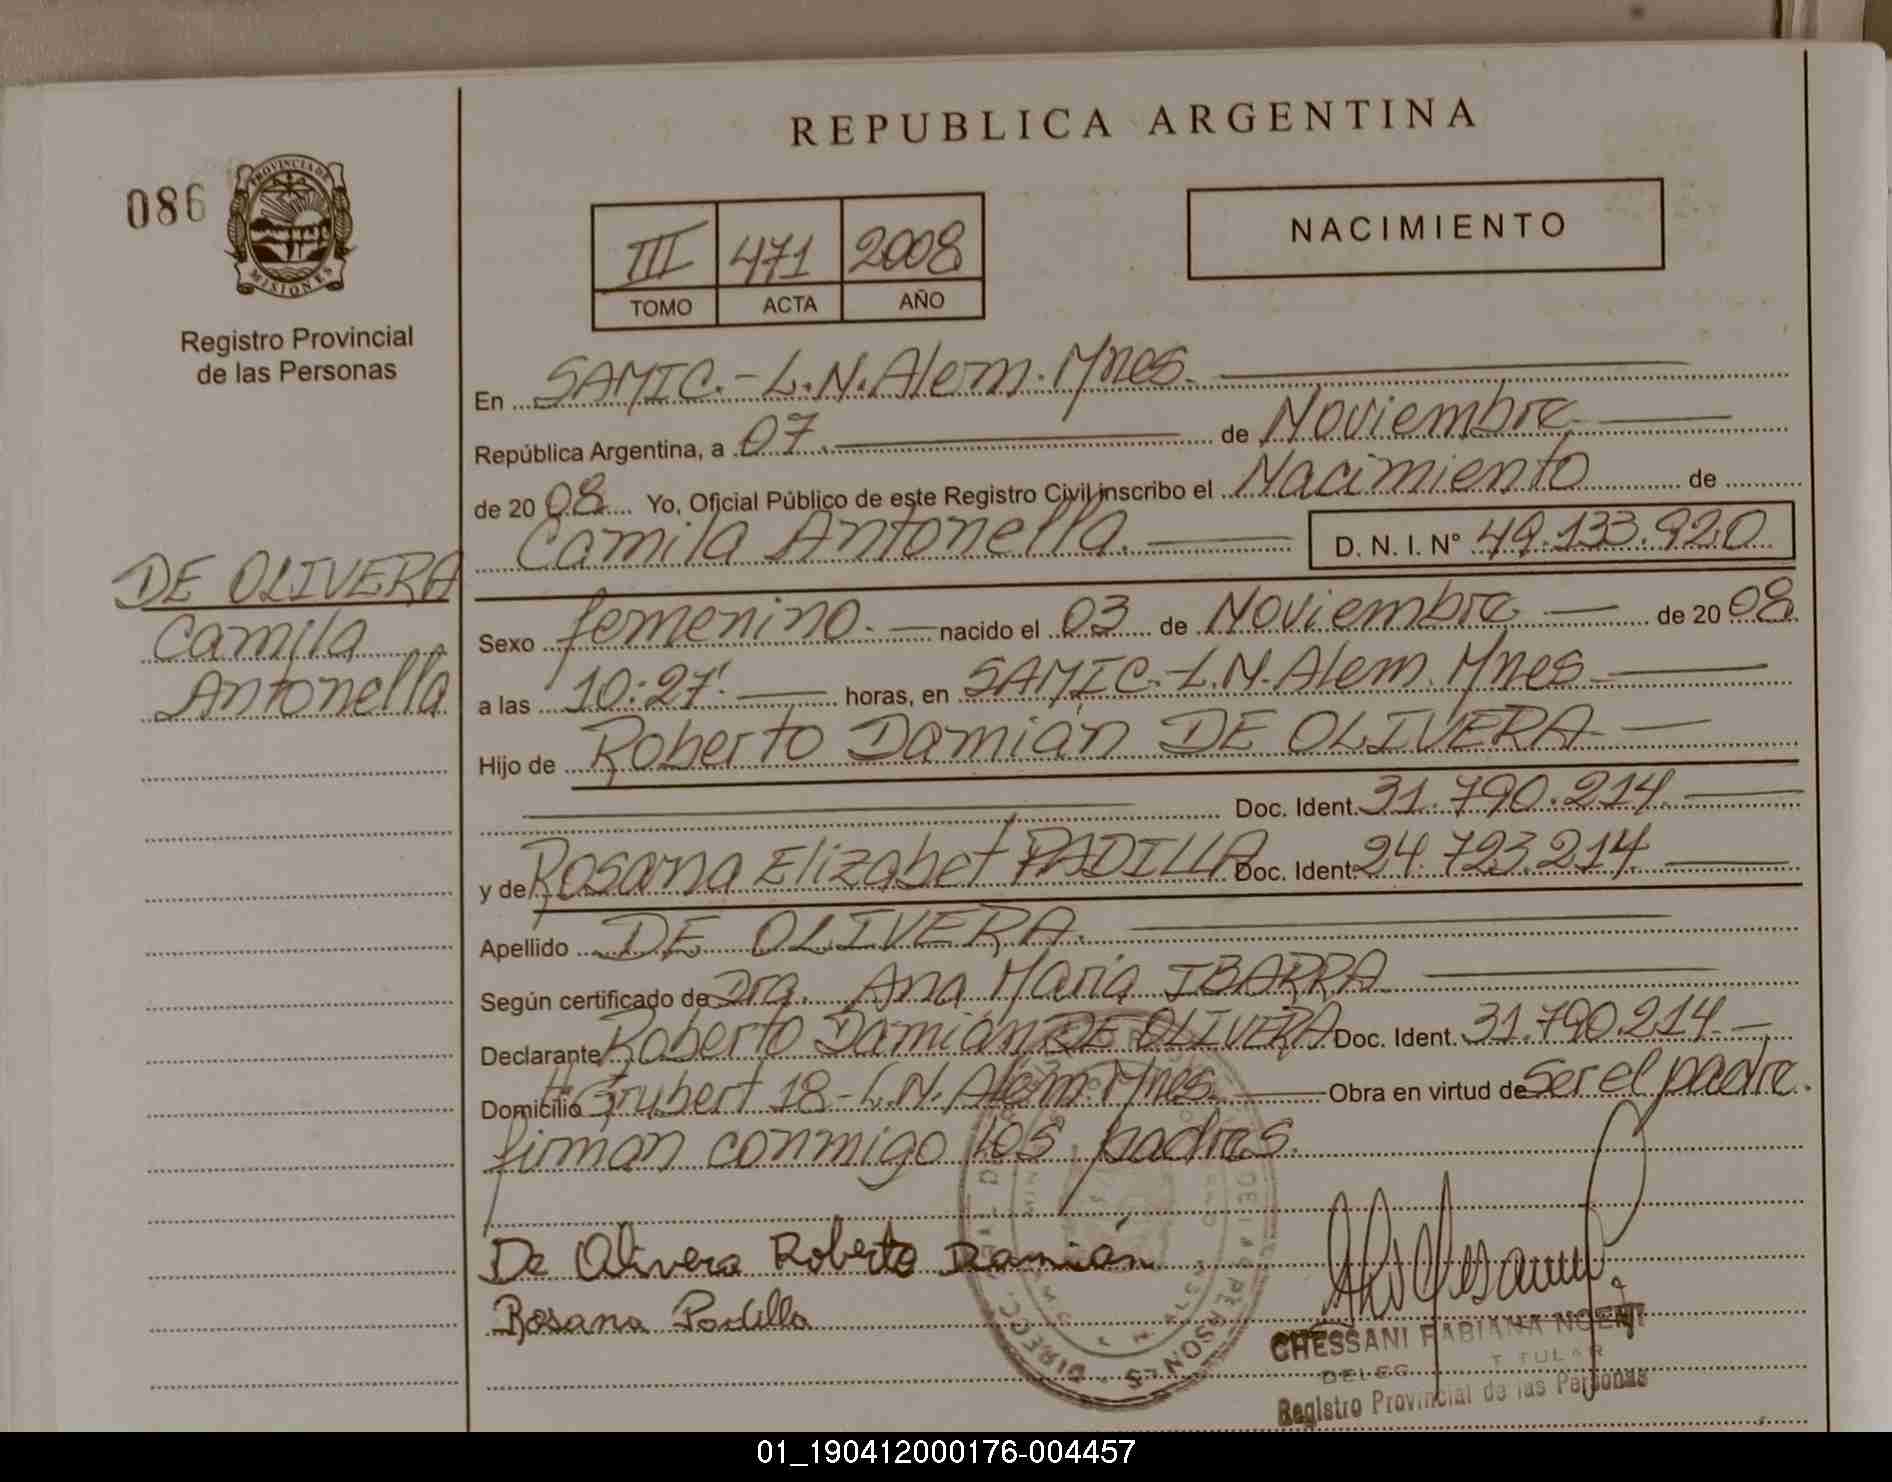 REPUBLICA ARGENTINA
086
PROVINCIA DE
MISIONES
Registro Provincial
de las Personas
III 471 2008
TOMO ACTA AÑO
NACIMIENTO
En SAMIC.-L.N.Alem.Mnes.
República Argentina, a 07. de Noviembre
de 2008 Yo, Oficial Público de este Registro Civil inscribo el Nacimiento de
Camila Antonella. D. N. I. Nº 49.133.920
DE OLIVERA
Camila
Antonella
Sexo femenino. nacido el 03 de Noviembre de 2008
a las 10:27'. horas, en SAMIC.-L.N.Alem.Mnes
Hijo de Roberto Damián DE OLIVERA
Doc. Ident. 31.790.214
y de Rosana Elizabet PADILLA Doc. Ident. 24.723.214
Apellido DE OLIVERA.
Según certificado de Dra. Ana Maria IBARRA
Declarante Roberto Damián DE OLIVERA Doc. Ident. 31.790.214
Domicilio Grubert 18-L.N.Alem.Mnes. Obra en virtud de Ser el padre.
firman conmigo los padres.
De Olivera Roberto Damián
Rosana Padilla
CHESSANI FABIANA NOEMI
TITULAR
Registro Provincial de las Personas
01_190412000176-004457